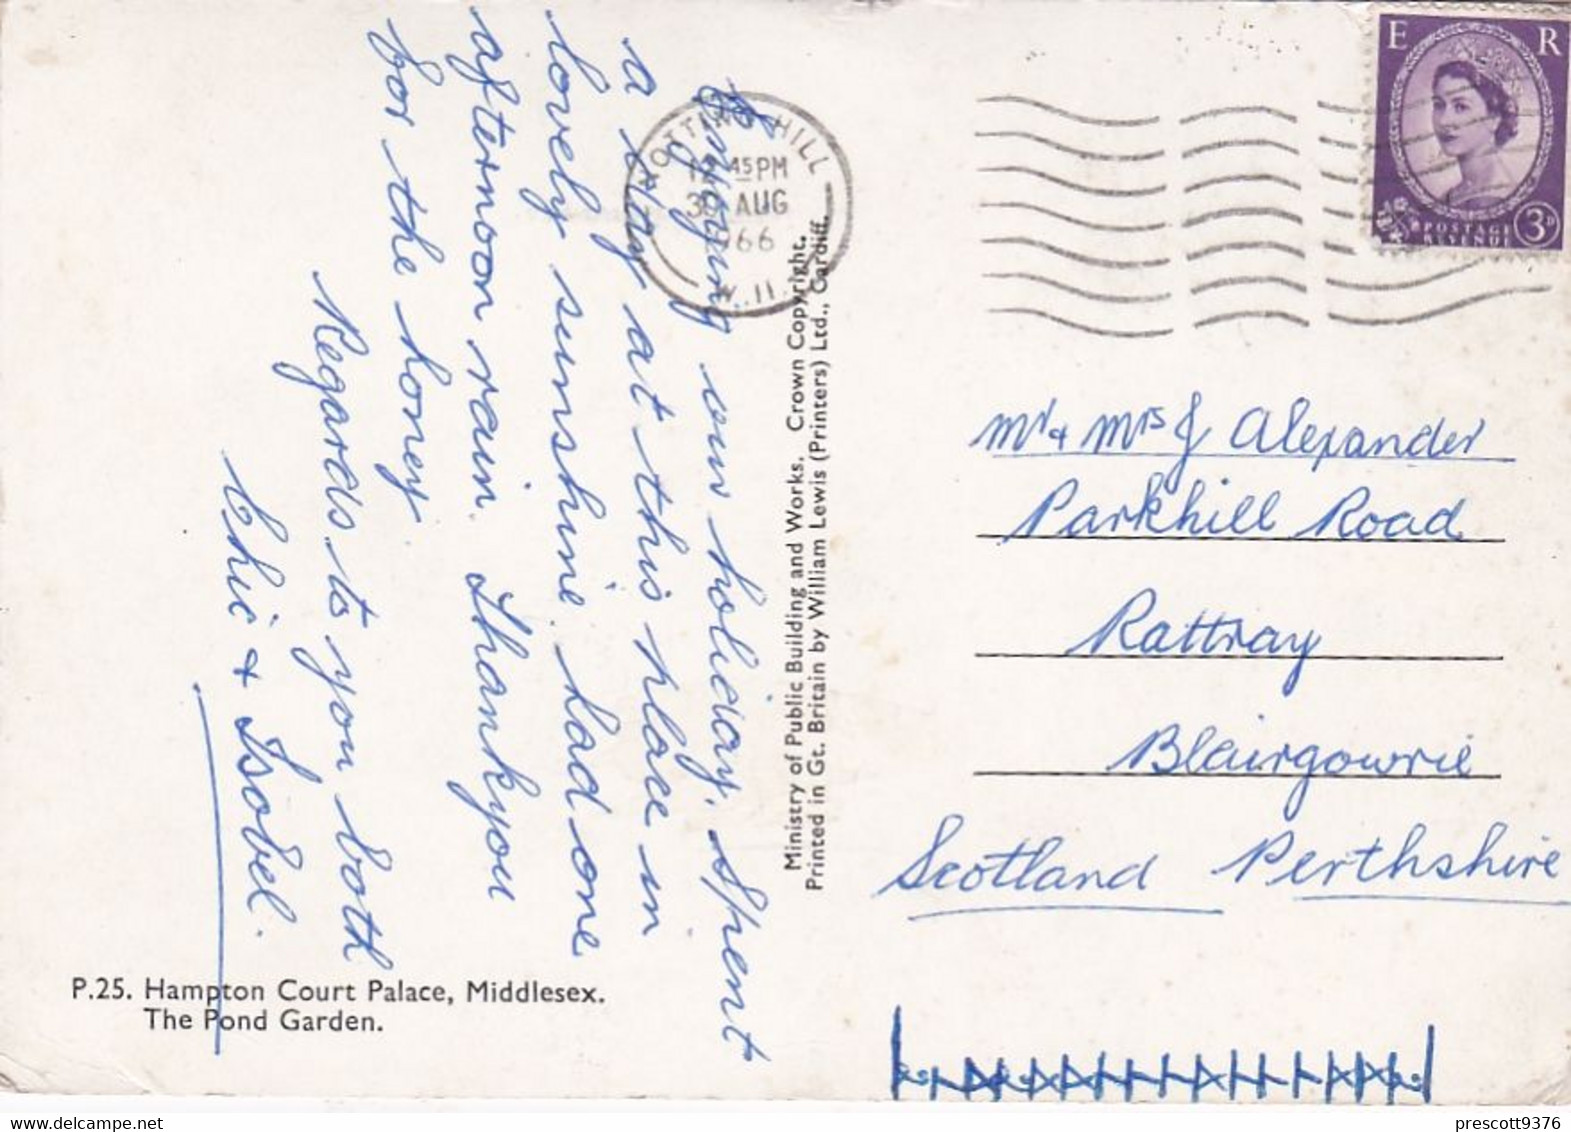 Enjoying our holiday. Spent
a day at this place in
lovely sunshine had one
afternoon rain. Thank you
for the honey
Regards to you both
Chic + Isobel.
P.25. Hampton Court Palace, Middlesex.
The Pond Garden.
Ministry of Public Building and Works. Crown Copyright.
Printed in Gt. Britain by William Lewis (Printers) Ltd., Cardiff.
NOTTING HILL
45 PM
30 AUG
1966
W.11.
E R
POSTAGE
REVENUE
3D
Mr + Mrs J Alexander
Parkhill Road
Rattray
Blairgowrie
Scotland Perthshire
prescott9376